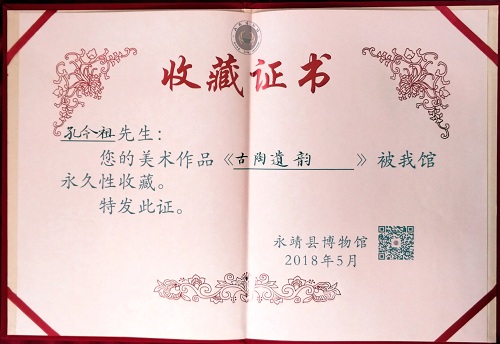 收藏证书
孔令祖先生：
您的美术作品《古陶遺韵》被我馆
永久性收藏。
特发此证。
永靖县博物馆
2018年5月